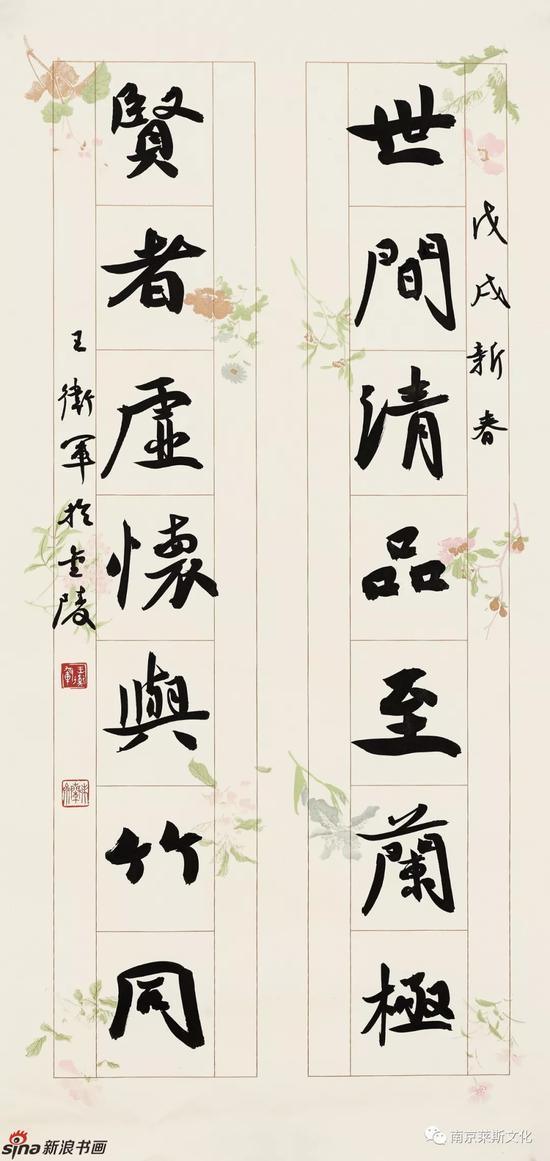 戊戌新春
世間清品至蘭極
賢者虛懷與竹同
王衛軍於金陵
sina新浪书画
南京莱斯文化